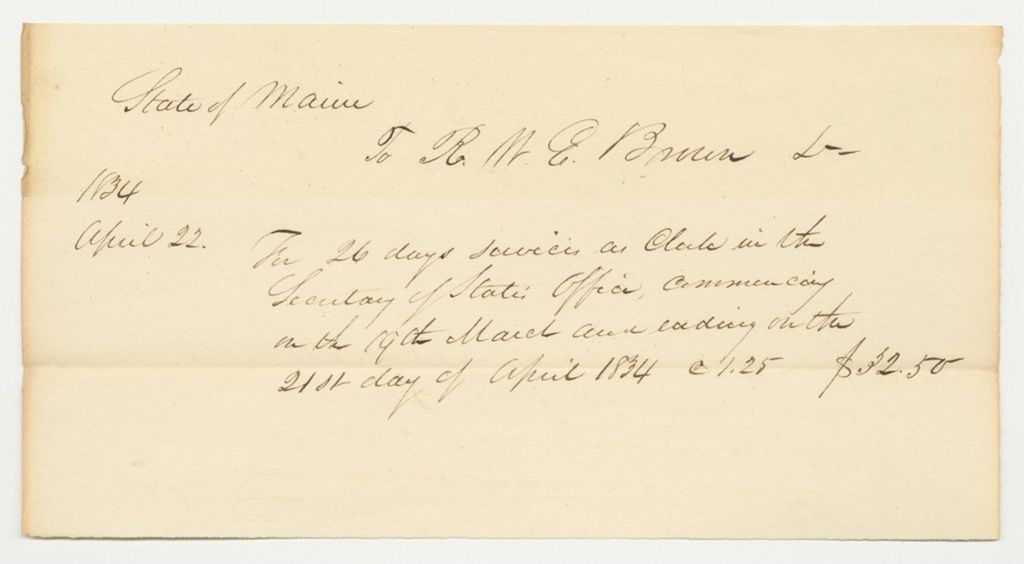 State of Maine
To R. W. E. Brown Dr
1834
April 22.
For 26 days services as Clerk in the
Secretary of State's Office, commencing
on the 19th March and ending on the
21st day of April 1834 @ 1.25 $32.50